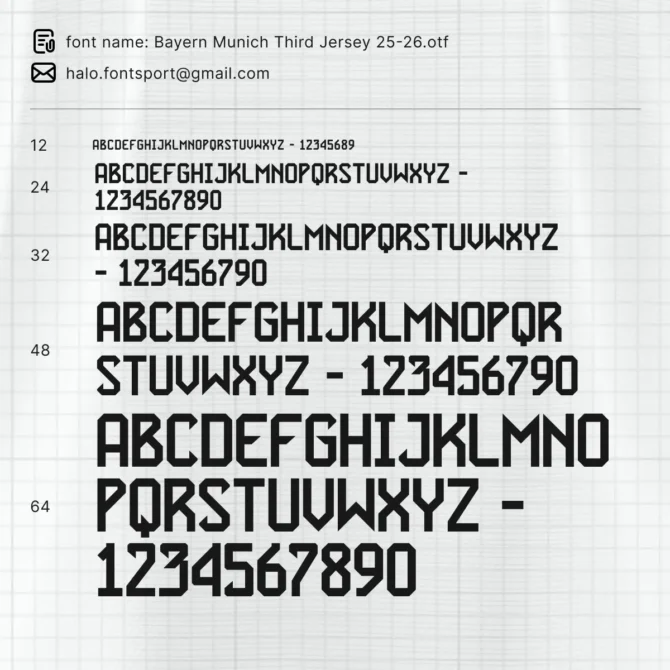 font name: Bayern Munich Third Jersey 25-26.otf
halo.fontsport@gmail.com
12
ABCDEFGHIJKLMNOPQRSTUVWXYZ - 12345689
24
ABCDEFGHIJKLMNOPQRSTUVWXYZ -
1234567890
32
ABCDEFGHIJKLMNOPQRSTUVWXYZ
- 123456790
48
ABCDEFGHIJKLMNOPQR
STUVWXYZ - 123456790
64
ABCDEFGHIJKLMNO
PQRSTUVWXYZ -
1234567890